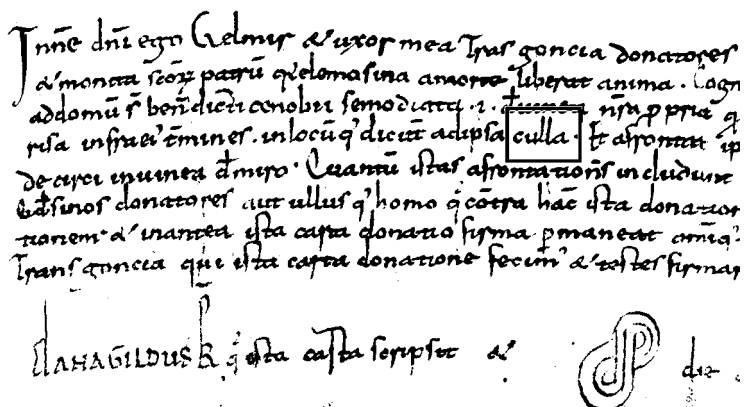 In nne dni ego Gelmir & uxor mea Trasgoncia donatores
& monita scorum patrum qr elemosina a morte liberat anima. Cogn
ad domum s benedicti cenobii semodiata .i. nsa ppria q
risa infra ei tmines. in locum q dicunt ad ipsa culla. Et afrontat ip
de circi in vinea miro. Quantum istas afrontationes includunt
donatores aut ullus q homo q contra hac ista donation
tionem. & in antea ista carta donatio firma pmaneat omiq
Transgoncia qui ista carta donatione fecim & testes firmar
DANAGILDUS q ista carta scripsit & die